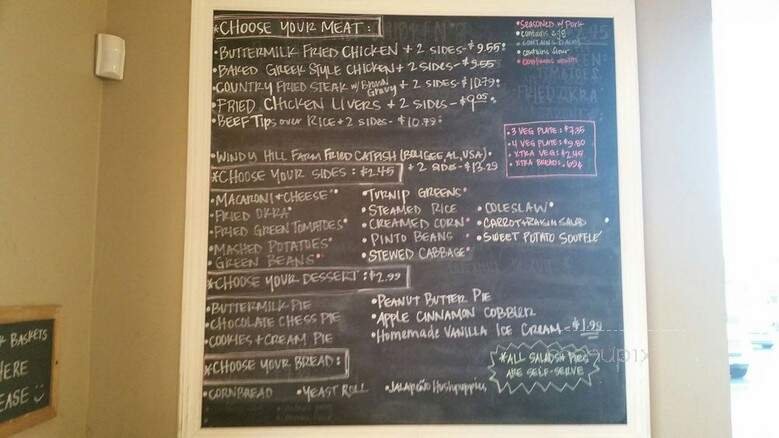 *CHOOSE YOUR MEAT:
•BUTTERMILK FRIED CHICKEN + 2 SIDES-$9.55
•BAKED GREEK STYLE CHICKEN + 2 SIDES-$9.55
•COUNTRY FRIED STEAK w/Brown Gravy + 2 SIDES-$10.79
•FRIED CHICKEN LIVERS + 2 SIDES-$9.05
•BEEF TIPS over RICE + 2 SIDES-$10.79
•WINDY HILL FARM FRIED CATFISH (BOLIGEE, AL, USA)
+ 2 SIDES-$13.29
•SEASONED w/ Pork
•contains egg
•CONTAINS DAIRY
•contains flour
•3 VEG PLATE: $7.35
•4 VEG PLATE: $9.80
•XTRA VEG: $2.45
•XTRA BREAD: .69¢
*CHOOSE YOUR SIDES: $2.45
•MACARONI + CHEESE
•FRIED OKRA
•FRIED GREEN TOMATOES
•MASHED POTATOES
•GREEN BEANS
•TURNIP GREENS
•STEAMED RICE
•CREAMED CORN
•PINTO BEANS
•STEWED CABBAGE
•COLESLAW
•CARROT + RAISIN SALAD
•SWEET POTATO SOUFFLE
*CHOOSE YOUR DESSERT: $2.99
•BUTTERMILK PIE
•CHOCOLATE CHESS PIE
•COOKIES + CREAM PIE
•PEANUT BUTTER PIE
•APPLE CINNAMON COBBLER
•HOMEMADE VANILLA ICE CREAM-$1.99
*CHOOSE YOUR BREAD:
•CORNBREAD •YEAST ROLL •JALAPEÑO Hushpuppies
*ALL SALADS + PIES
ARE SELF-SERVE
BASKETS
HERE